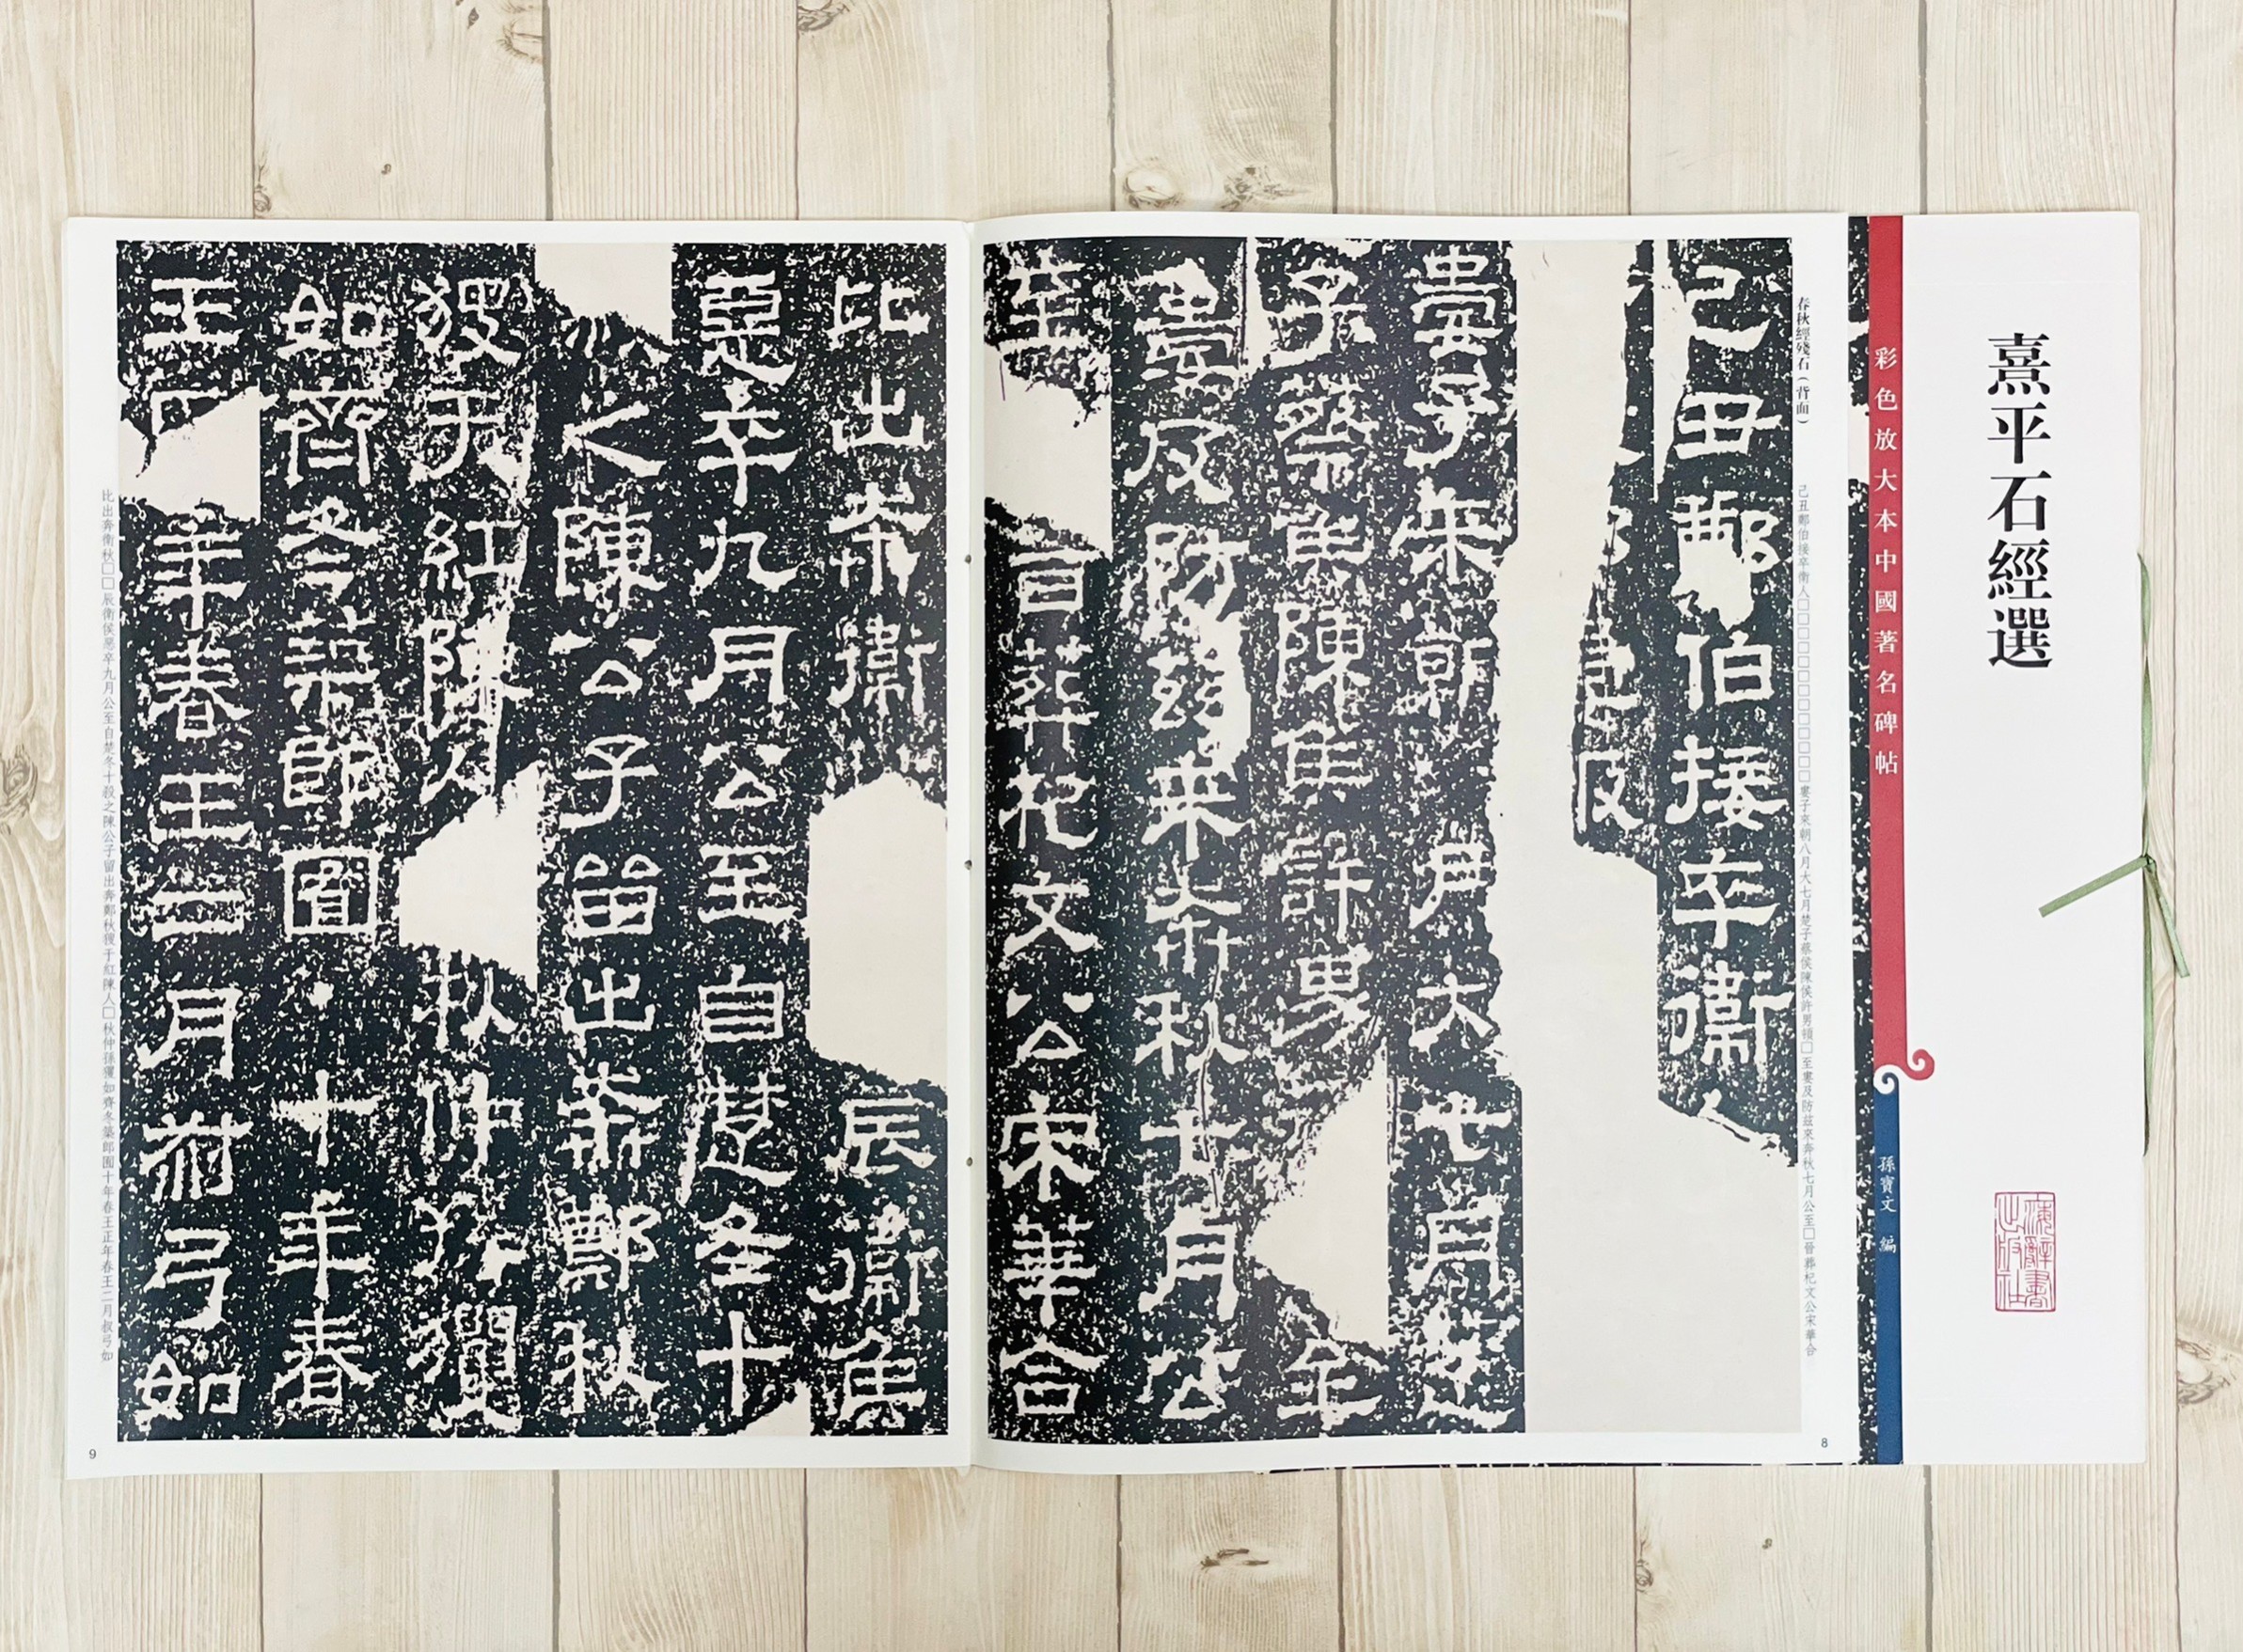 熹平石經選
彩色放大本中國著名碑帖
孫寶文 編
海辭書出版社
春秋經殘石（背面）
己丑鄭伯接卒衛人□□□□□□□□□□□□□婁子來朝八月大七月楚子蔡侯陳侯許男頓□至婁及防茲來奔秋七月公至□晉葬杞文公宋華合
己丑鄭伯接卒衛
婁子來朝 月大 七月楚
子蔡侯陳侯許男
婁及防茲來奔秋七月公
至 晉葬杞文公宋華合
8
比出奔衛 辰衛侯
惡卒九月公至自楚冬十
之陳公子留出奔鄭秋
于紅陳人 秋仲孫玃
如齊冬築郎囿·十年春
王正 年春王二月叔弓如
比出奔衛秋□□辰衛侯惡卒九月公至自楚冬十殺之陳公子留出奔鄭秋獀于紅陳人□秋仲孫玃如齊冬築郎囿十年春王正年春王二月叔弓如
9